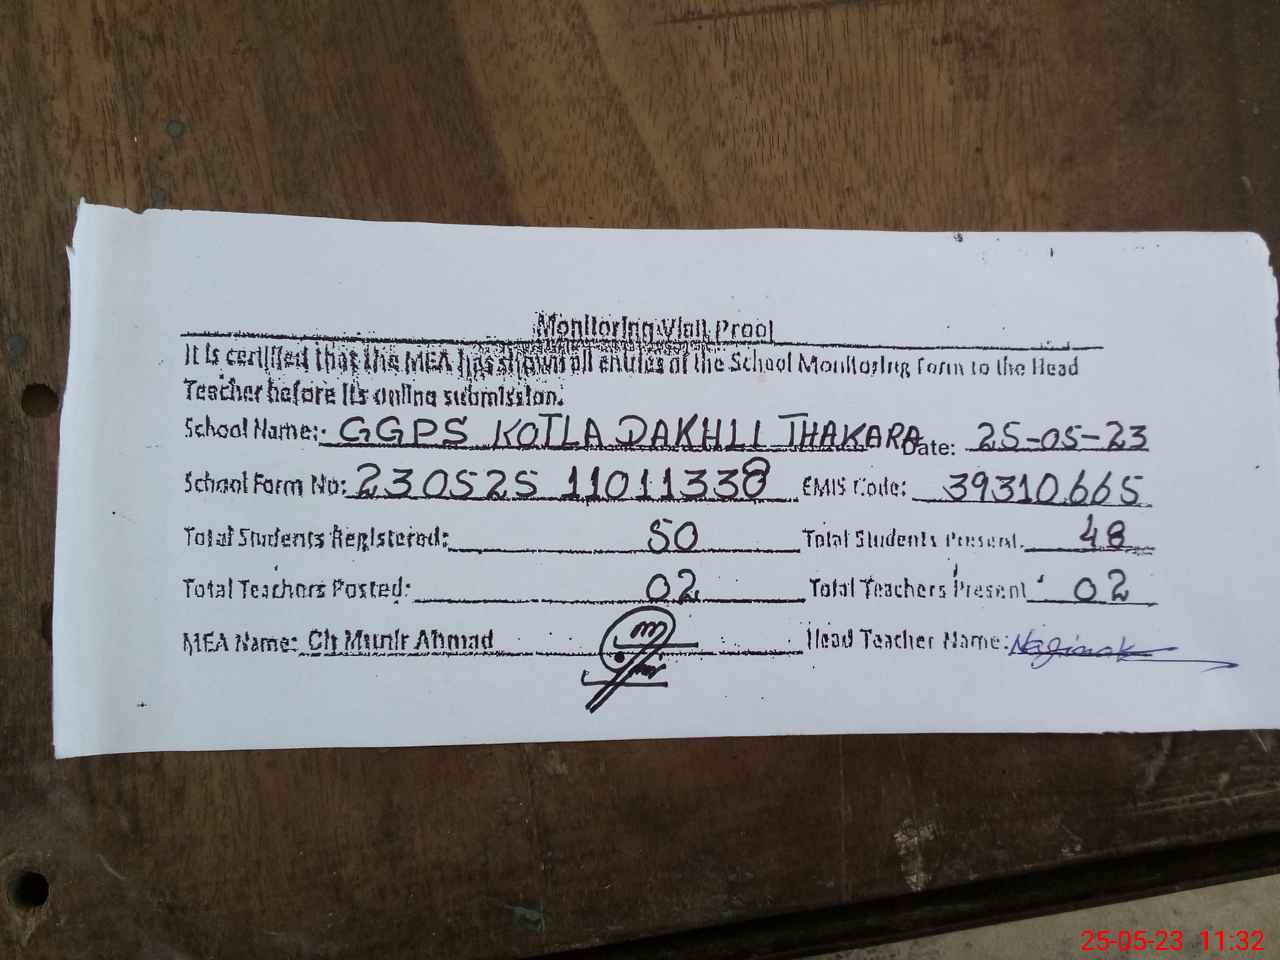 Monitoring Visit Proof
It is certified that the MEA has shown all entries of the School Monitoring Form to the Head
Teacher before its online submission.
School Name: GGPS KOTLA DAKHLI THAKARA Date: 25-05-23
School Form No: 230525 11011338 EMIS Code: 39310665
Total Students Registered: 50 Total Students Present: 48
Total Teachers Posted: 02 Total Teachers Present: 02
MEA Name: Ch Munir Ahmad Head Teacher Name:
25-05-23 11:32